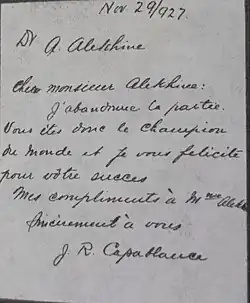 Nov 29/927.
Dr A. Alekhine
Cher monsieur Alekhine:
J'abandonne la partie.
Vous êtes donc le champion
du Monde et je vous felicite
pour votre succes
Mes compliments à Mme Alekhine
Sincerement à vous
J. R. Capablanca